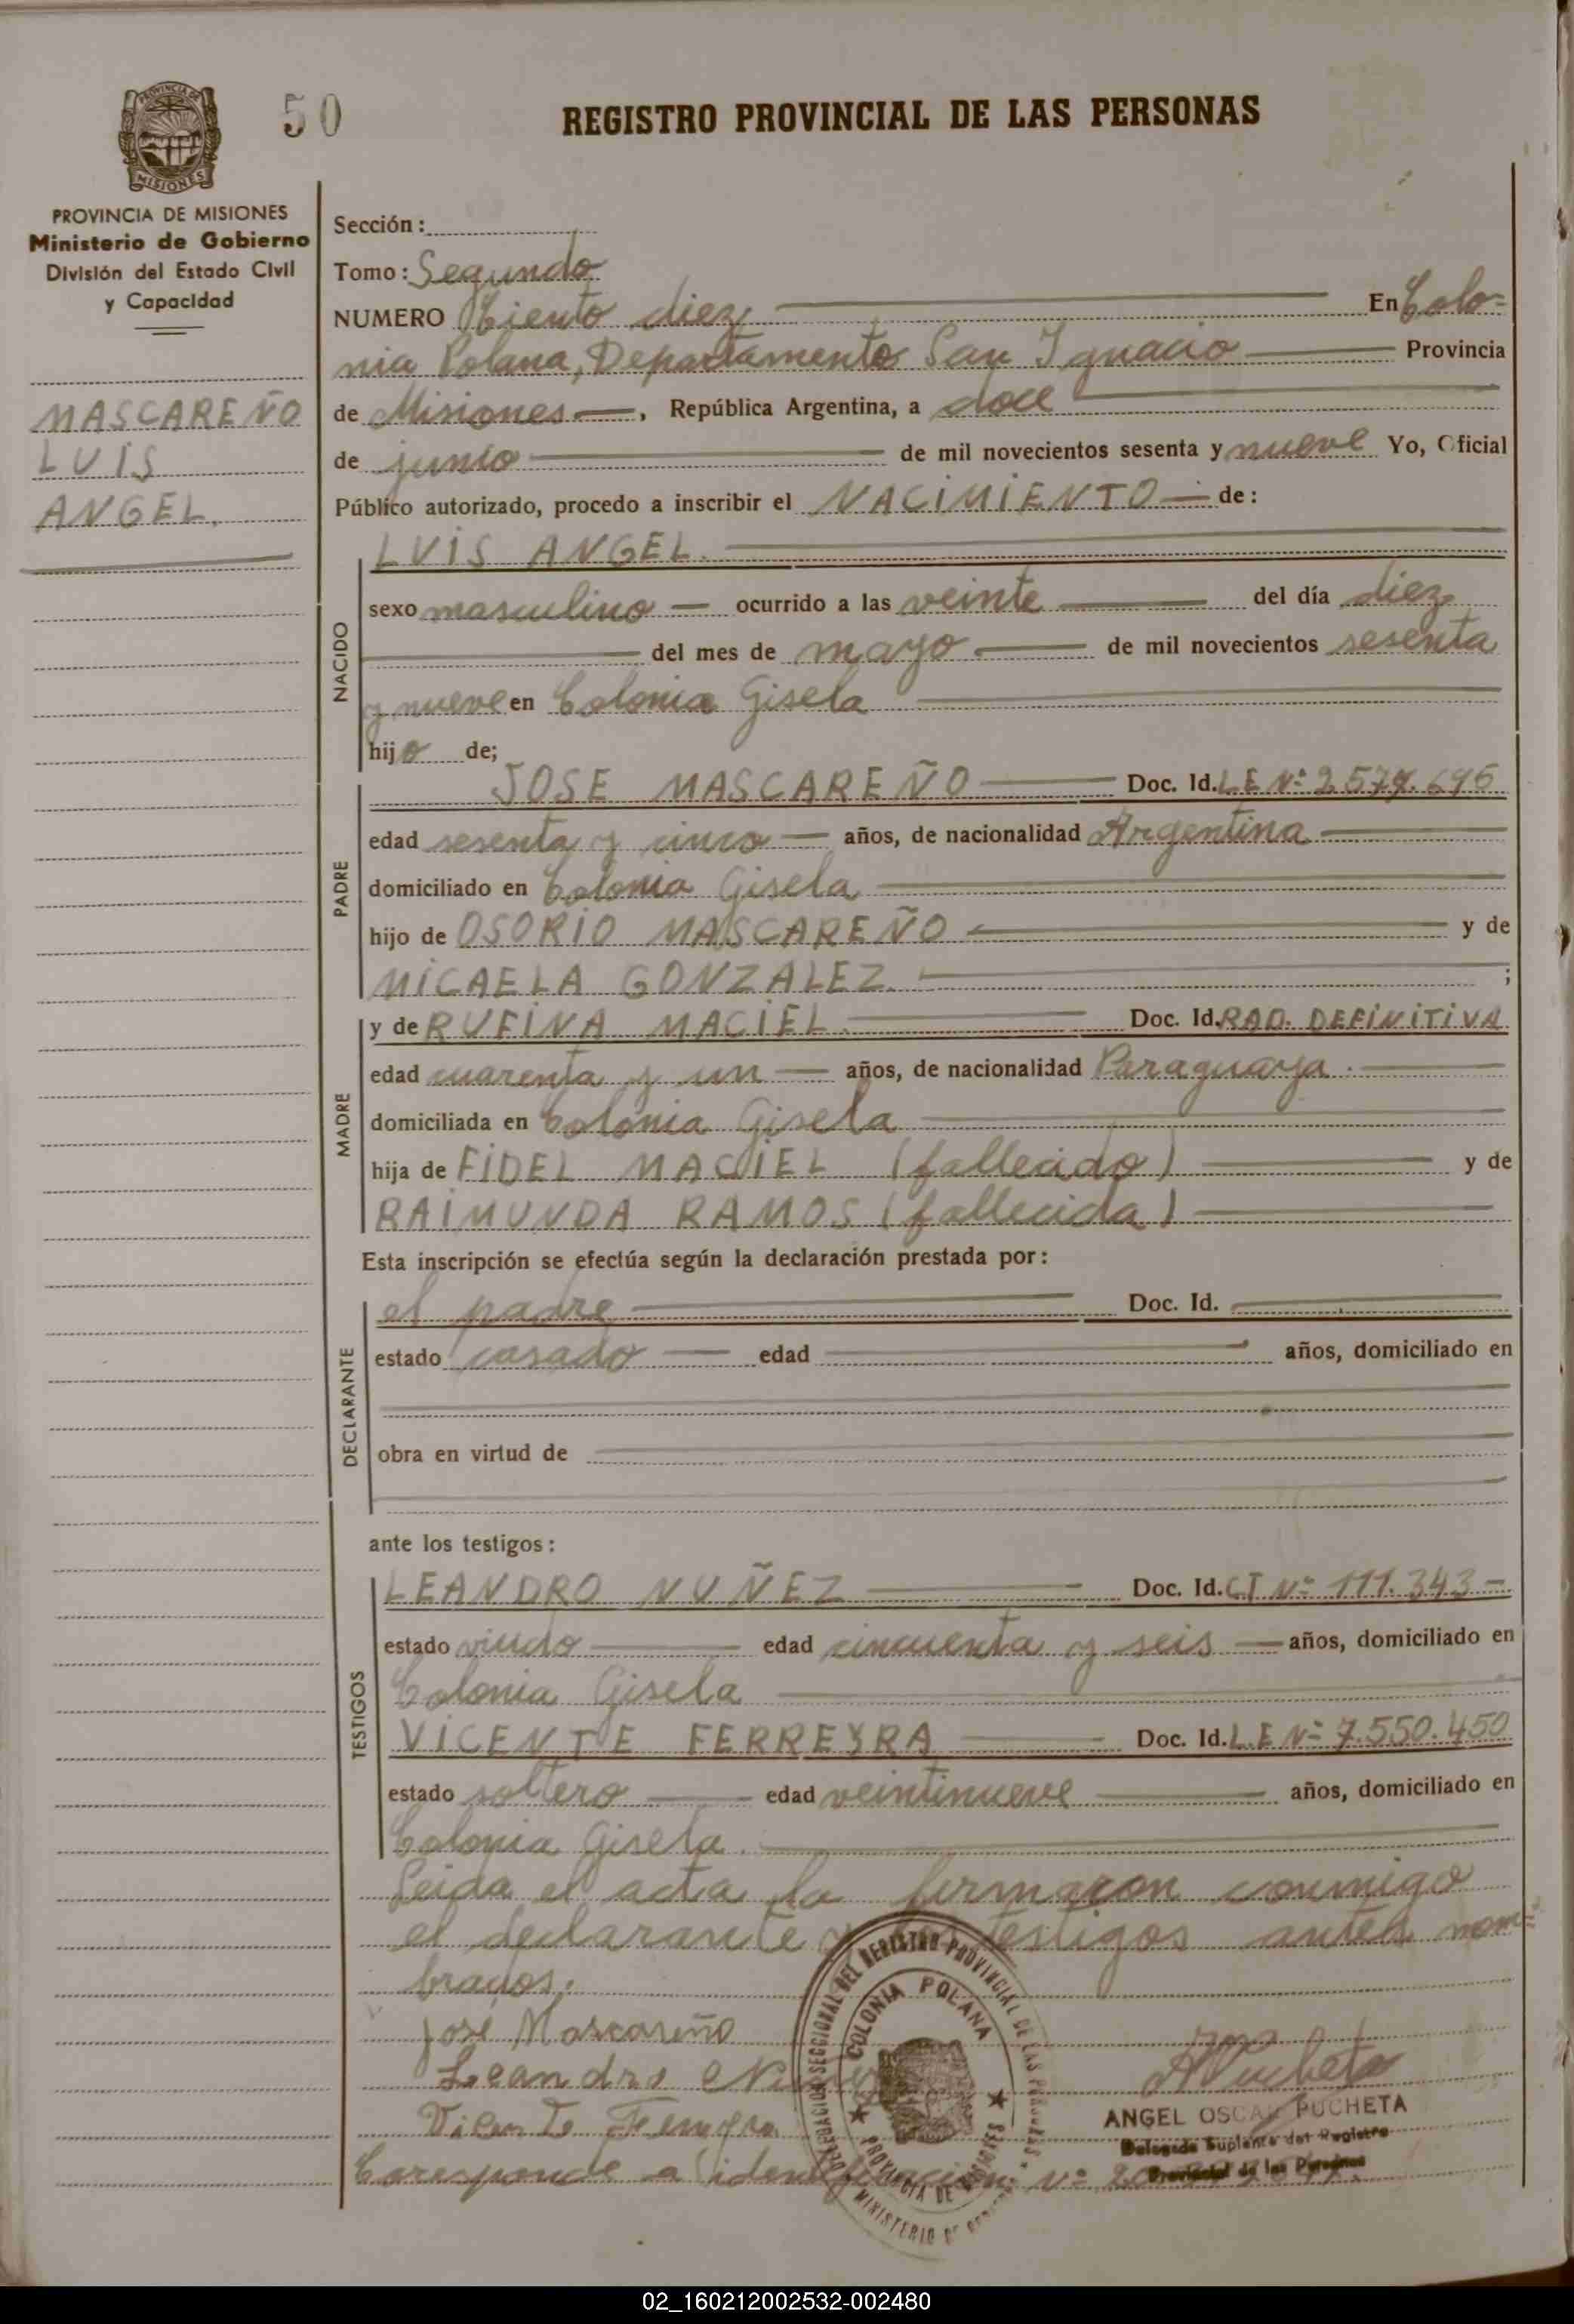 50
REGISTRO PROVINCIAL DE LAS PERSONAS
PROVINCIA DE
MISIONES
PROVINCIA DE MISIONES
Ministerio de Gobierno
División del Estado Civil
y Capacidad
MASCAREÑO
LUIS
ANGEL.
Sección:
Tomo: Segundo
NUMERO Ciento diez En Colo=
nia Polana, Departamento San Ignacio Provincia
de Misiones, República Argentina, a doce
de junio de mil novecientos sesenta y nueve Yo, Oficial
Público autorizado, procedo a inscribir el NACIMIENTO de:
LUIS ANGEL.
NACIDO
sexo masculino ocurrido a las veinte del día diez
del mes de mayo de mil novecientos sesenta
y nueve en Colonia Gisela
hijo de;
PADRE
JOSE MASCAREÑO Doc. Id. L E Nº
edad sesenta y cinco años, de nacionalidad Argentina
domiciliado en Colonia Gisela
hijo de OSORIO MASCAREÑO y de
MICAELA GONZALEZ. ;
MADRE
y de RUFINA MACIEL Doc. Id. RAD. DEFINITIVA
edad cuarenta y un años, de nacionalidad Paraguaya.
domiciliada en Colonia Gisela
hija de FIDEL MACIEL (fallecido) y de
RAIMUNDA RAMOS (fallecida)
Esta inscripción se efectúa según la declaración prestada por:
DECLARANTE
el padre Doc. Id.
estado casado edad años, domiciliado en
obra en virtud de
ante los testigos:
TESTIGOS
LEANDRO NUÑEZ Doc. Id. C.I Nº 111.343
estado viudo edad cincuenta y seis años, domiciliado en
Colonia Gisela
VICENTE FERREYRA Doc. Id. L.E Nº 7.550.450
estado soltero edad veintinueve años, domiciliado en
Colonia Gisela.
Leida el acta la firmaron conmigo
el declarante y los testigos antes nom=
brados.
José Mascareño
Leandro Nuñez
Vicente Ferreyra
DELEGACION SECCIONAL DEL REGISTRO PROVINCIAL DE LAS PERSONAS
COLONIA POLANA
PROVINCIA DE MISIONES
MINISTERIO DE
APucheta
ANGEL OSCAR PUCHETA
Delegado Suplente del Registro
Provincial de las Personas
Corresponde a identificación Nº
02_160212002532-002480